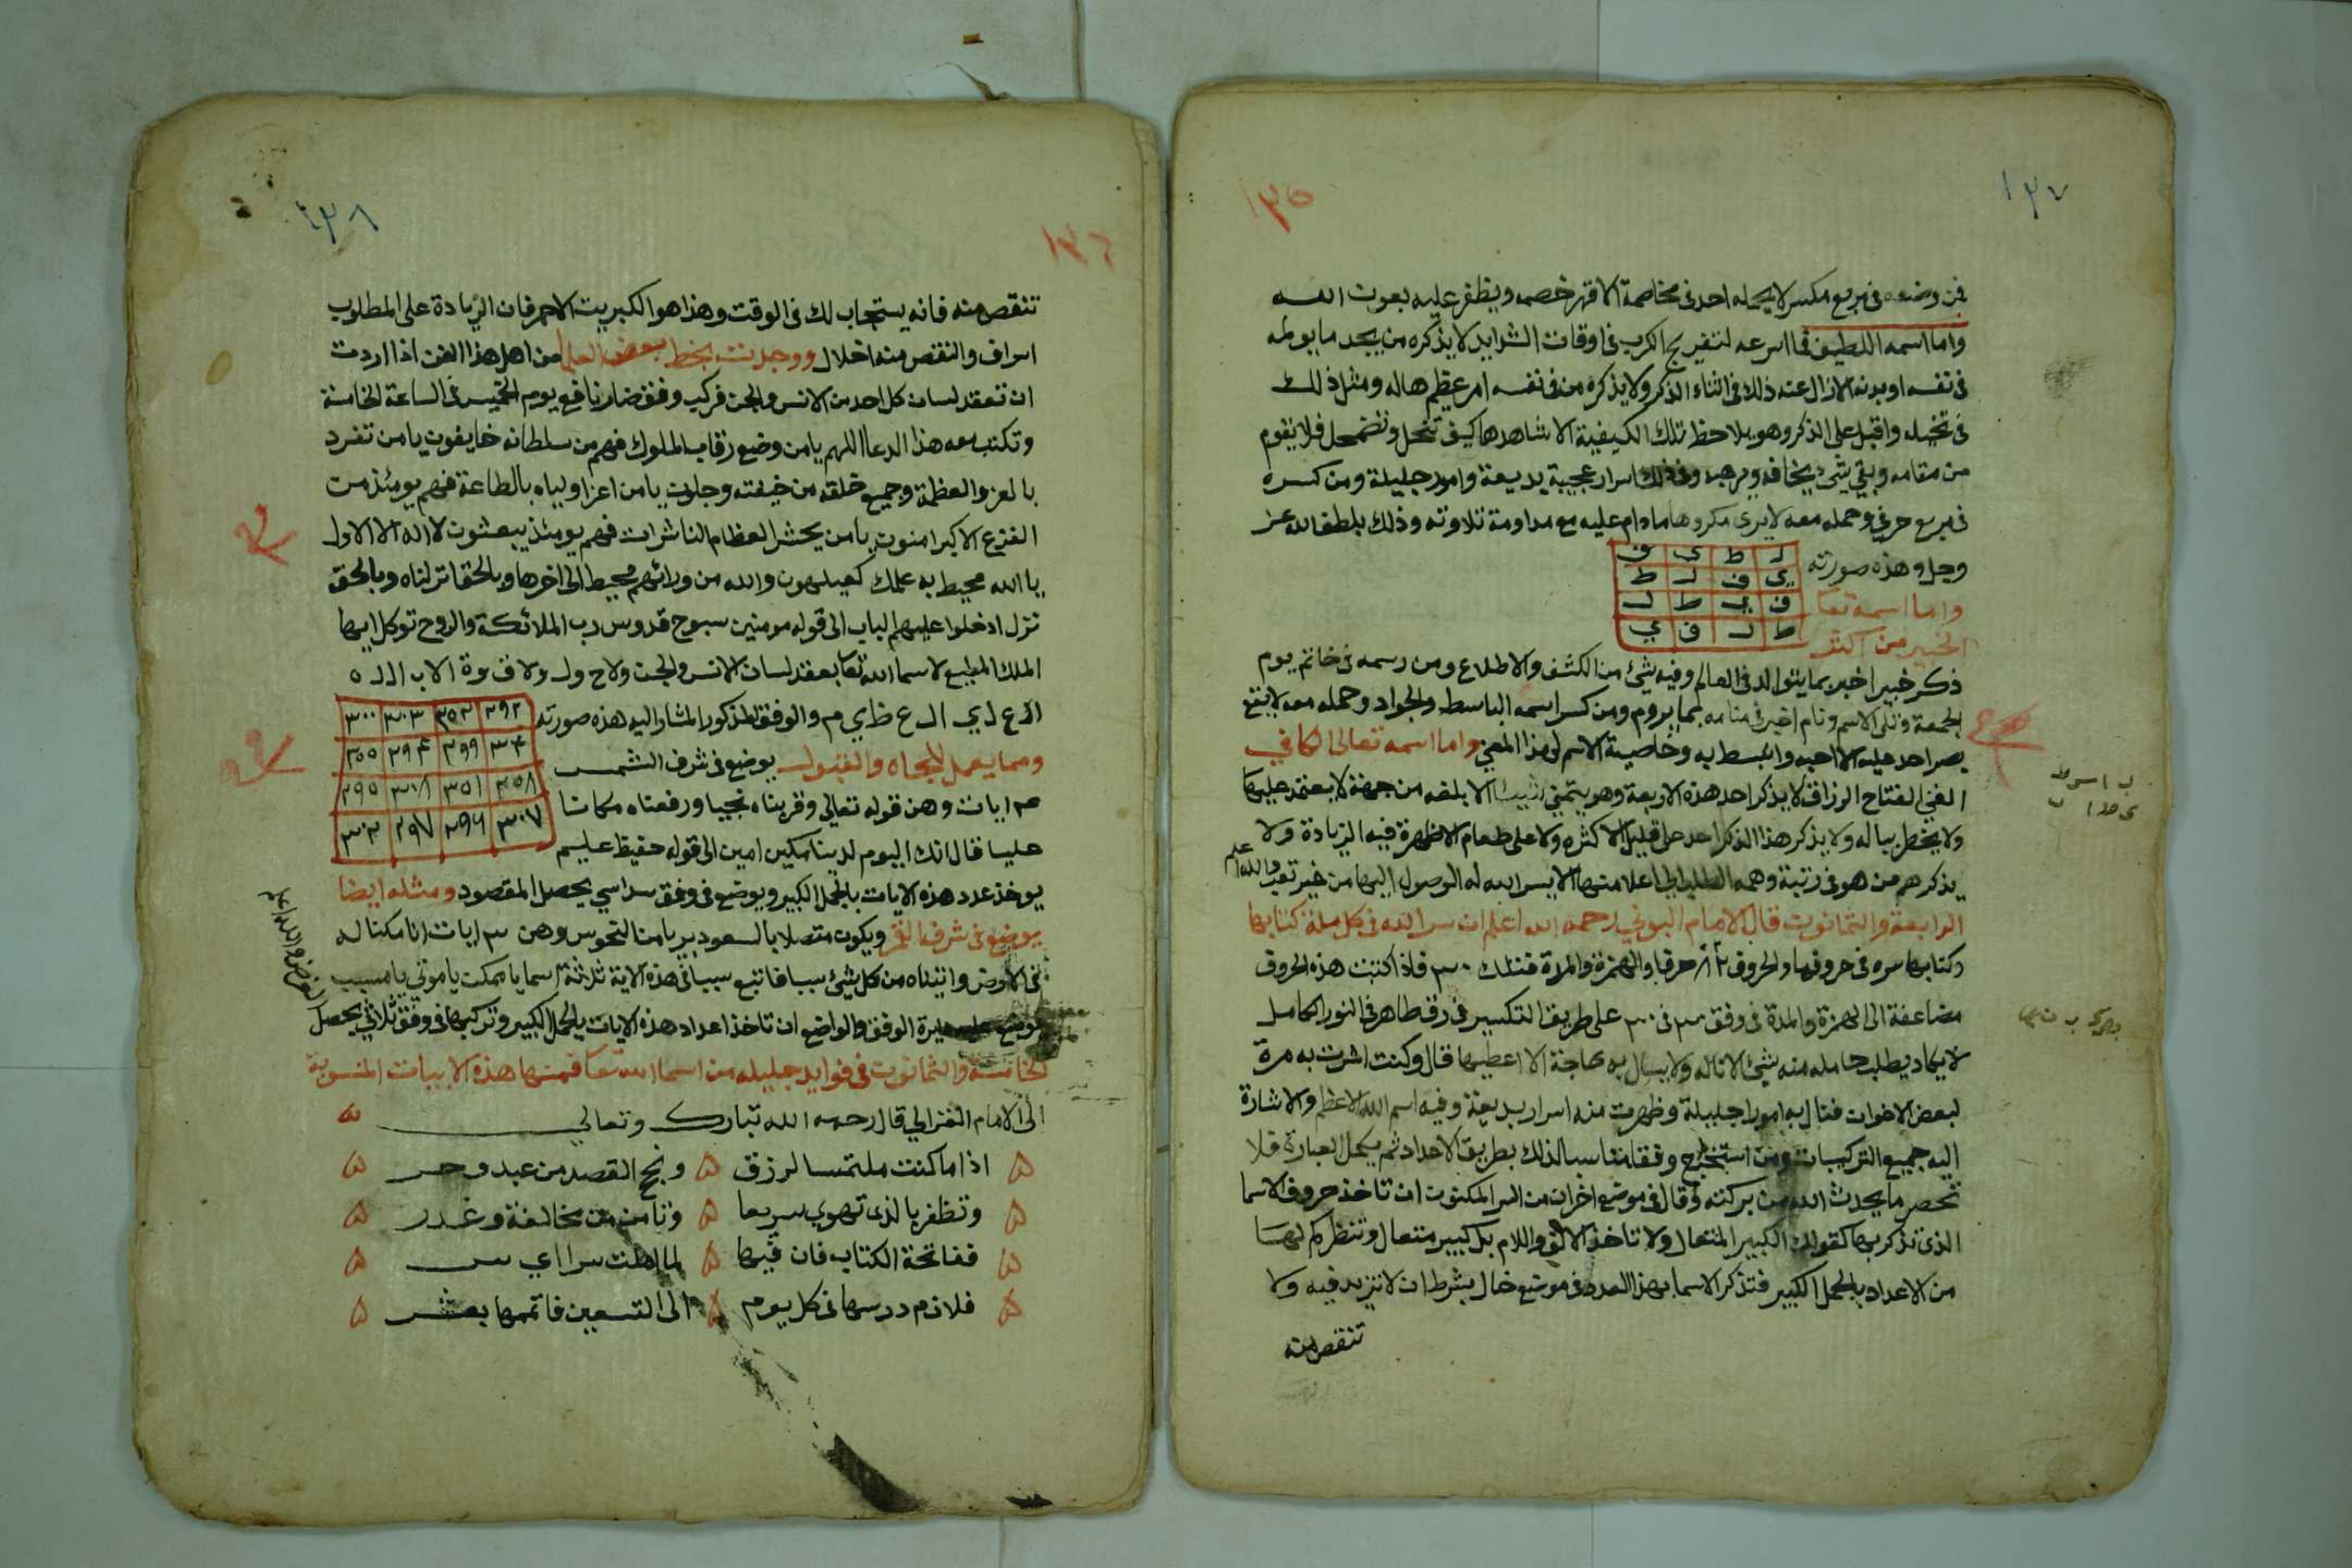 ١٣٧
١٣٥
فمن وضعه فى مربع مكسر لا يحمله احد فى مخاصمة الا قهر خصمه ويظفر عليه بعون الله
واما اسمه اللطيف فما اسرعه لتفريج الكرب فى اوقات الشدايد لا يذكره من يجد ما يولمه
فى نفسه او بدنه الا زال عنه ذلك فى اثناء الذكر ولا يذكره من فى نفسه امر عظيم هاله ومثل ذلك
فى تخيله واقبل على الذكر وهو يلاحظ تلك الكيفية الا شاهدها كيف تنحل وتضمحل فلا يقوم
من مقامه وبقي شئ يخافه ويرهبه وفى ذلك اسرار عجيبة بديعة وامور جليلة ومن كسره
فى مربع حرفي وحمله معه لا يرى مكروها مادام عليه مع مداومة تلاوته وذلك بلطف الله عز
وجل وهذه صورته
ل ط ي ف
ي ف ل ط
ف ي ط ل
ط ل ف ي
واما اسمه تعا
الخبير من اكثر
ذكر خبير اخبر بما يتوالد فى العالم وفيه شئ من الكشف والاطلاع ومن رسمه فى خاتم يوم
الجمعة وتلى الاسم ونام اخبر فى منامه بما يروم ومن كسر اسمه الباسط والجواد وحمله معه لا يقع
بصر احد عليه الا احبه وانبسط به وخاصية الاسم لهذا المعنى واما اسمه تعالى الكافي
الغني الفتاح الرزاق لا يذكر احد هذه الاربعة وهو يتمنى شيئا الا بلغه من جهة لا يعتمد عليها
ولا يخطر بباله ولا يذكر هذا الذكر احد على قليل الا كثره ولا على طعام الا ظهرة فيه الزيادة ولا
يذكرهم من هو فى رتبة وهمه الطلب الى اعلا منها الا يسر الله له الوصول اليها من غير تعب والله اعلم
الرابعة والثمانون قال الامام البوني رحمه الله اعلم ان سر الله فى كل ملة كتابها
وكتابها سره فى حروفها والحروف ٢٨ حرفا والهمزة والمدة فتلك ٣٠ فاذا كتبت هذه الحروف
مضاعفة الى الهمزة والمدة فى وفق ٣٠ فى ٣٠ على طريق التكسير فى رق طاهر فى النور الكامل
لا يكاد يطلب حامله منه شئ الا ناله ولا يسال به حاجة الا اعطيها قال وكنت اشرت به مرة
لبعض الاخوان فنال به امورا جليلة وظهرت منه اسرار بديعة وفيه اسم الله الاعظم والاشارة
اليه جميع التركيبات ومن استخرج وفقا مناسبا لذلك بطريق الاعداد ثم يكمل العبارة فلا
تحصر ما يحدث الله من بركته وقال فى موضع اخر ان من السر المكنون ان تاخذ حروف الاسما
الذى تذكر بها كقولك الكبير المتعال ولا تاخذ الالف واللام بل كبير متعال وتنظر كم لها
من الاعداد بالجمل الكبير فتذكر الاسما بهذا العدد فى موضع خال بشرط ان لا تزيد فيه ولا
تنقص منه
١٣٨
١٣٦
تنقص منه فانه يستجاب لك فى الوقت وهذا هو الكبريت الاحمر فان الزيادة على المطلوب
اسراف والنقص منه اخلال ووجدت بخط بعض العلما من اهل هذا الفن اذا اردت
ان تعقد لسان كل احد من الانس والجن فركب وفق ضار نافع يوم الخميس فى الساعة الخامسة
وتكتب معه هذا الدعا اللهم يا من وضع رقاب الملوك فهم من سلطانه خايفون يا من تفرد
بالعز والعظمة وجميع خلقه من خيفته وجلون يا من اعز اوليائه بالطاعة فهم يومئذ من
الفزع الاكبر امنون يا من يحشر العظام الناشرات فهم يومئذ يبعثون لا اله الا الاول
يا الله محيط به علمك كعيلهون والله من ورائهم محيط الى اخرها وبالحق انزلناه وبالحق
نزل ادخلوا عليهم الباب الى قوله مومنين سبوح قدوس رب الملائكة والروح توكل ايها
الملك المطيع لاسما الله تعا بعقد لسان الانس والجن ولا ح ول ولا ق وة الا ب ال ل ه
ال ع ل ي ال ع ظ ي م والوفق المذكور المشار اليه هذه صورته
٢٩٢ ٣٥٢ ٣٠٣ ٣٠٠
٣٠٤ ٢٩٩ ٢٩٤ ٣٥٥
٣٥٨ ٣٥١ ٣٠٨ ٢٩٥
٣٠٧ ٢٩٦ ٢٩٧ ٣٠٢
ومما يعمل للجاه والقبول يوضع فى شرف الشمس
٣ ايات وهن قوله تعالي وقربناه نجيا ورفعناه مكانا
عليا قال انك اليوم لدينا مكين امين الى قوله حفيظ عليم
يوخذ عدد هذه الايات بالجمل الكبير ويوضع فى وفق سداسي يحصل المقصود ومثله ايضا
يوضع فى شرف القمر ويكون متصلا بالسعود بريا من النحوس وهن ٣ ايات انا مكنا له
فى الارض واتيناه من كل شئ سببا فاتبع سببا فى هذه الاية ثلاثة اسما يا ممكن يا موتي يا مسبب
الوفق والواضع ان تاخذ اعداد هذه الايات بالجمل الكبير وتركبها فى وفق ثلاثي يحصل
الغرض والله اعلم
الخامسة والثمانون فى فوايد جليله من اسما الله تعا فمنها هذه الابيات المنسوبة
الى الامام الغزالي قال رحمه الله تبارك وتعالي
اذا ما كنت ملتمسا لرزق ونجح القصد من عبد وحر
وتظفر بالذى تهوي سريعا وتامن من مخالفة وغدر
ففاتحة الكتاب فان فيها لما املت سرا اي سر
فلازم درسها فى كل يوم الى التسعين فاتمها بعشر